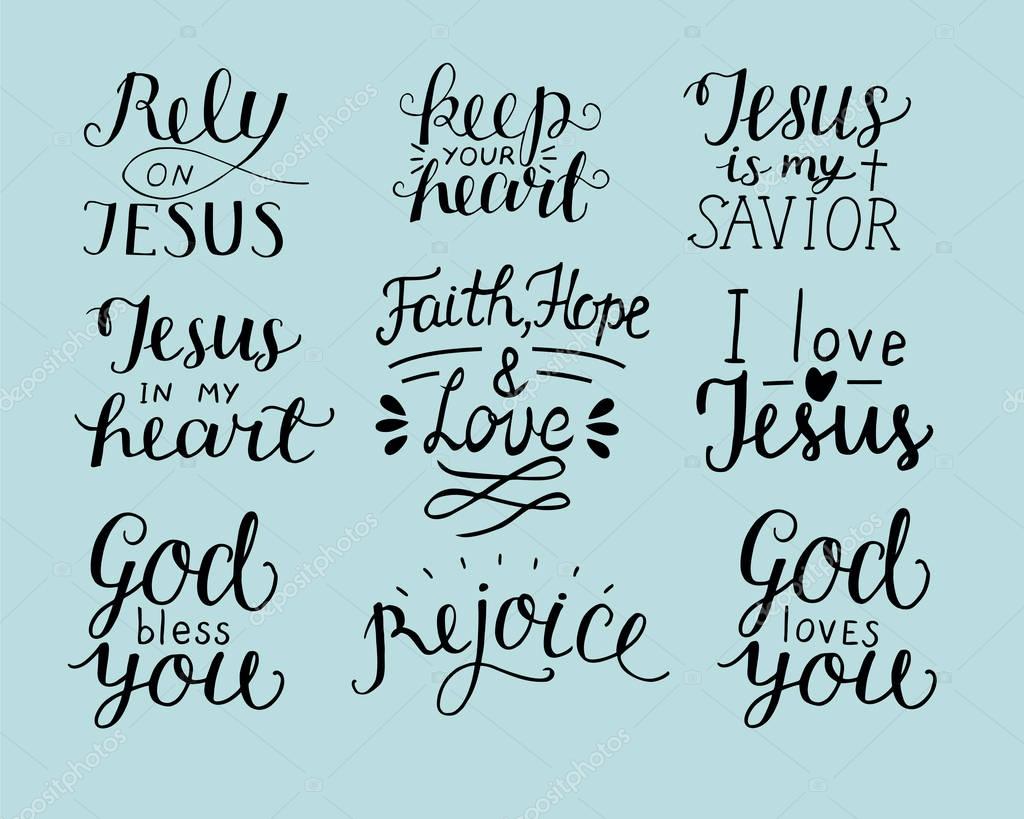 Rely
ON
JESUS
keep
YOUR
heart
Jesus
is my
SAVIOR
Jesus
IN MY
heart
Faith, Hope
&
Love
I love
Jesus
God
bless
you
Rejoice
God
LOVES
you
depositphotos